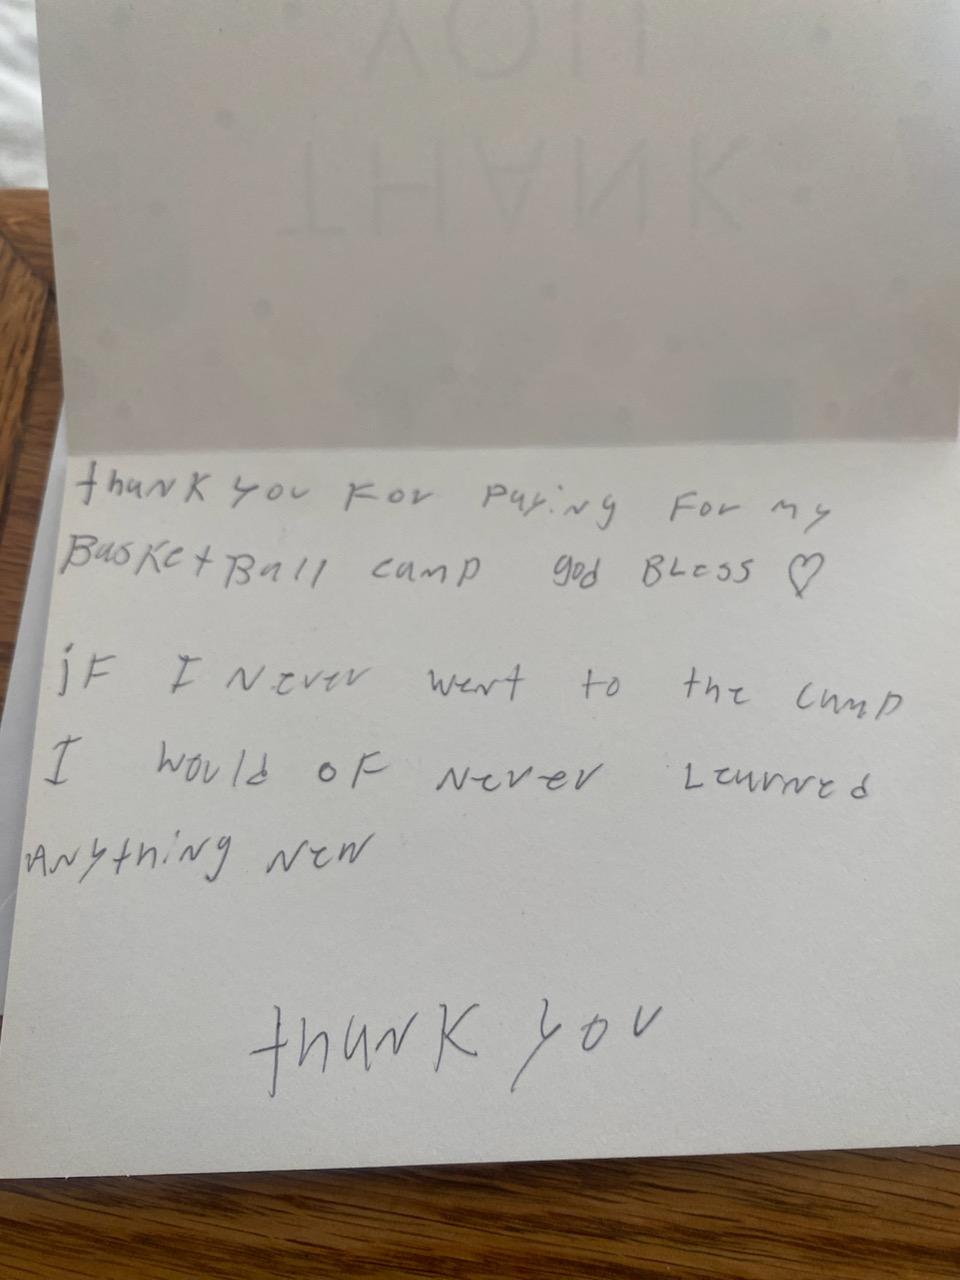 YOU
THANK
thank you For paying For my
BasketBall camp god BLess ♡
iF I Never went to the camp
I would oF Never Learned
ANything New
thank you